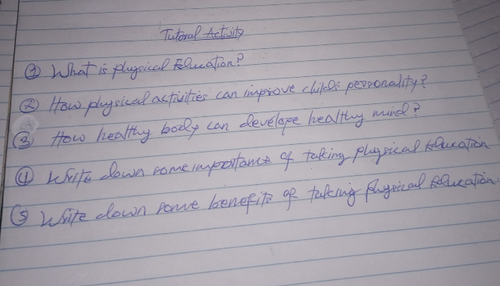 Tutoral Activity
① What is physical Education?
② How physical activities can improve child's personality?
③ How healthy body can develope healthy mind?
④ Write down some importance of taking physical Education
⑤ Write down some benefits of taking physical Education